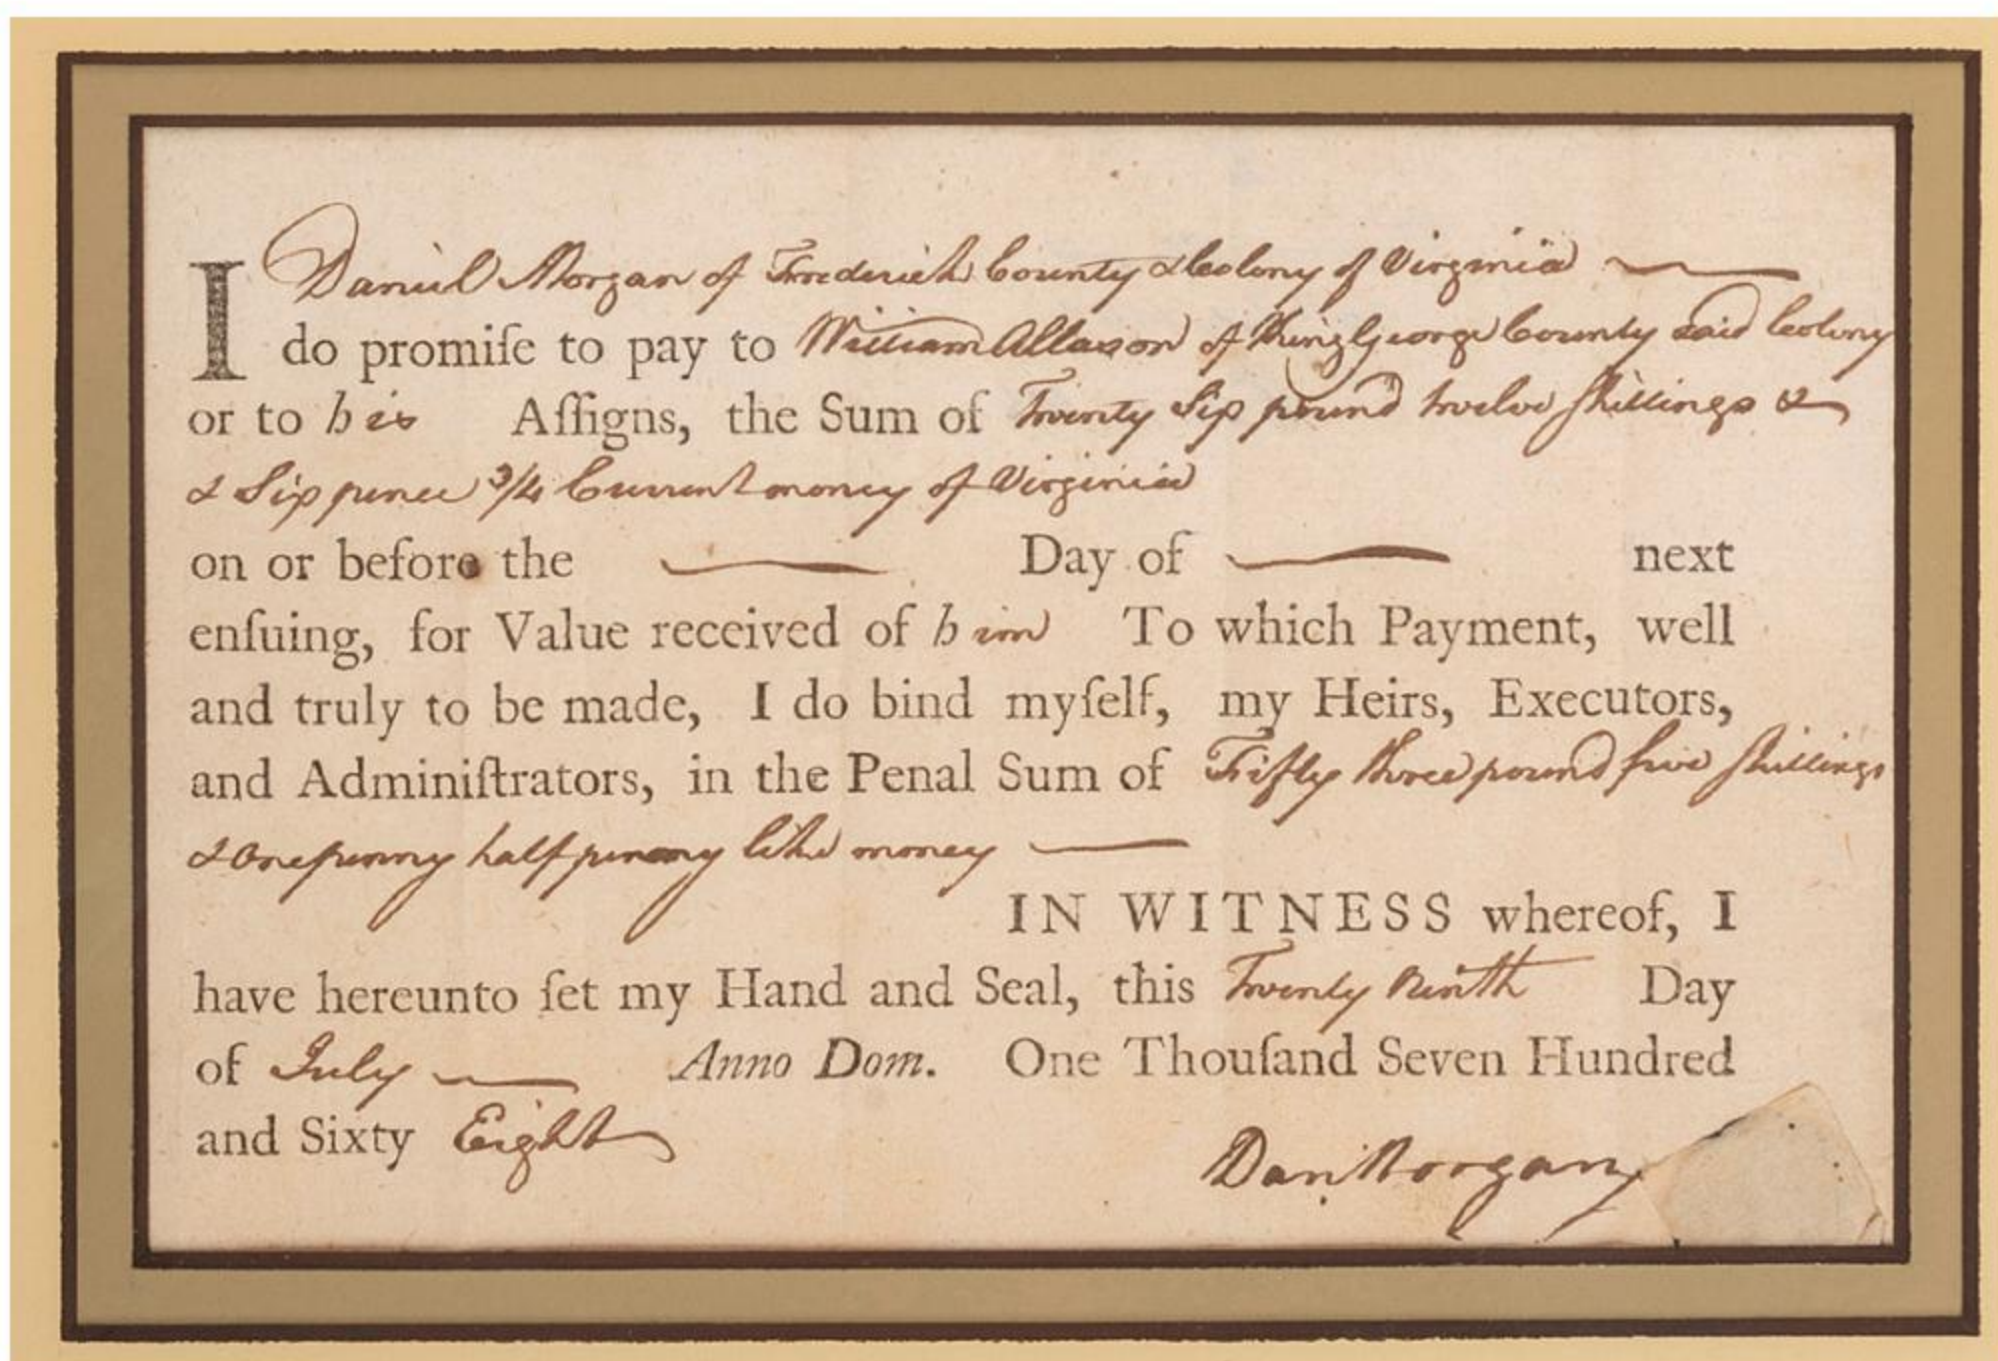 I Daniel Morgan of Frederick County & Colony of Virginia
do promiſe to pay to William Allason of King George County said Colony
or to his Aſſigns, the Sum of Twenty Six pound twelve Shillings &
& Six pence 3/4 Current money of Virginia
on or before the Day of next
enſuing, for Value received of him To which Payment, well
and truly to be made, I do bind myſelf, my Heirs, Executors,
and Adminiſtrators, in the Penal Sum of Fifty three pound five Shillings
& One penny half penny like money
IN WITNESS whereof, I
have hereunto ſet my Hand and Seal, this Twenty Ninth Day
of July Anno Dom. One Thouſand Seven Hundred
and Sixty Eight
Dan Morgan